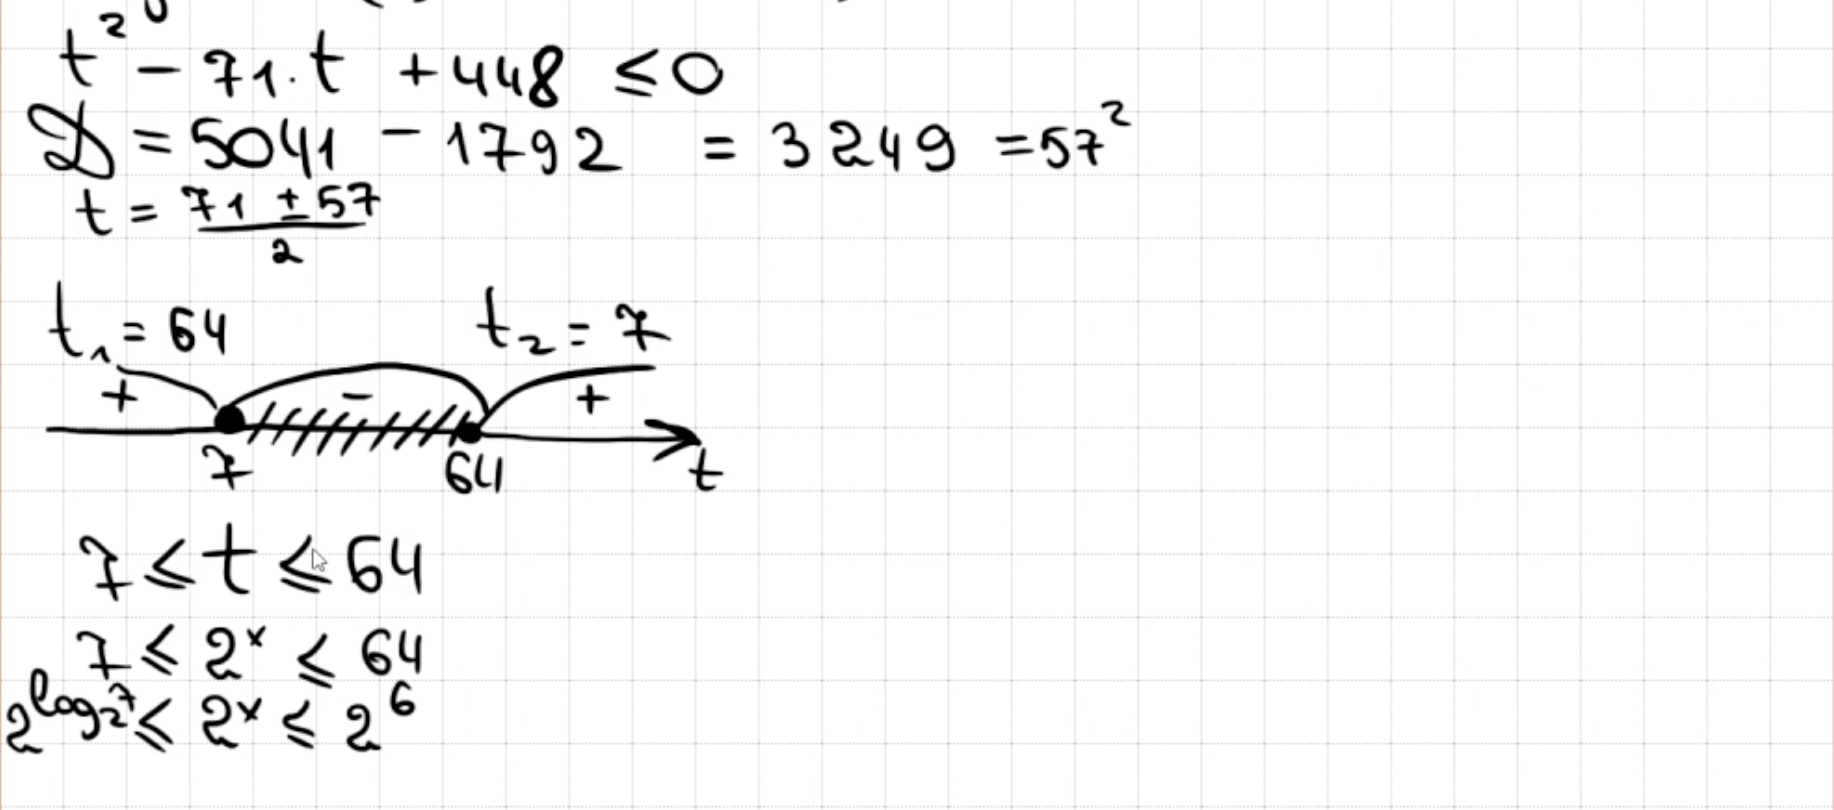 t² - 71·t + 448 ≤ 0
D = 5041 - 1792 = 3249 = 57²
t = (71 ± 57)/2
t₁ = 64 t₂ = 7
+ - +
7 64 t
7 ≤ t ≤ 64
7 ≤ 2ˣ ≤ 64
2^(log₂7) ≤ 2ˣ ≤ 2⁶